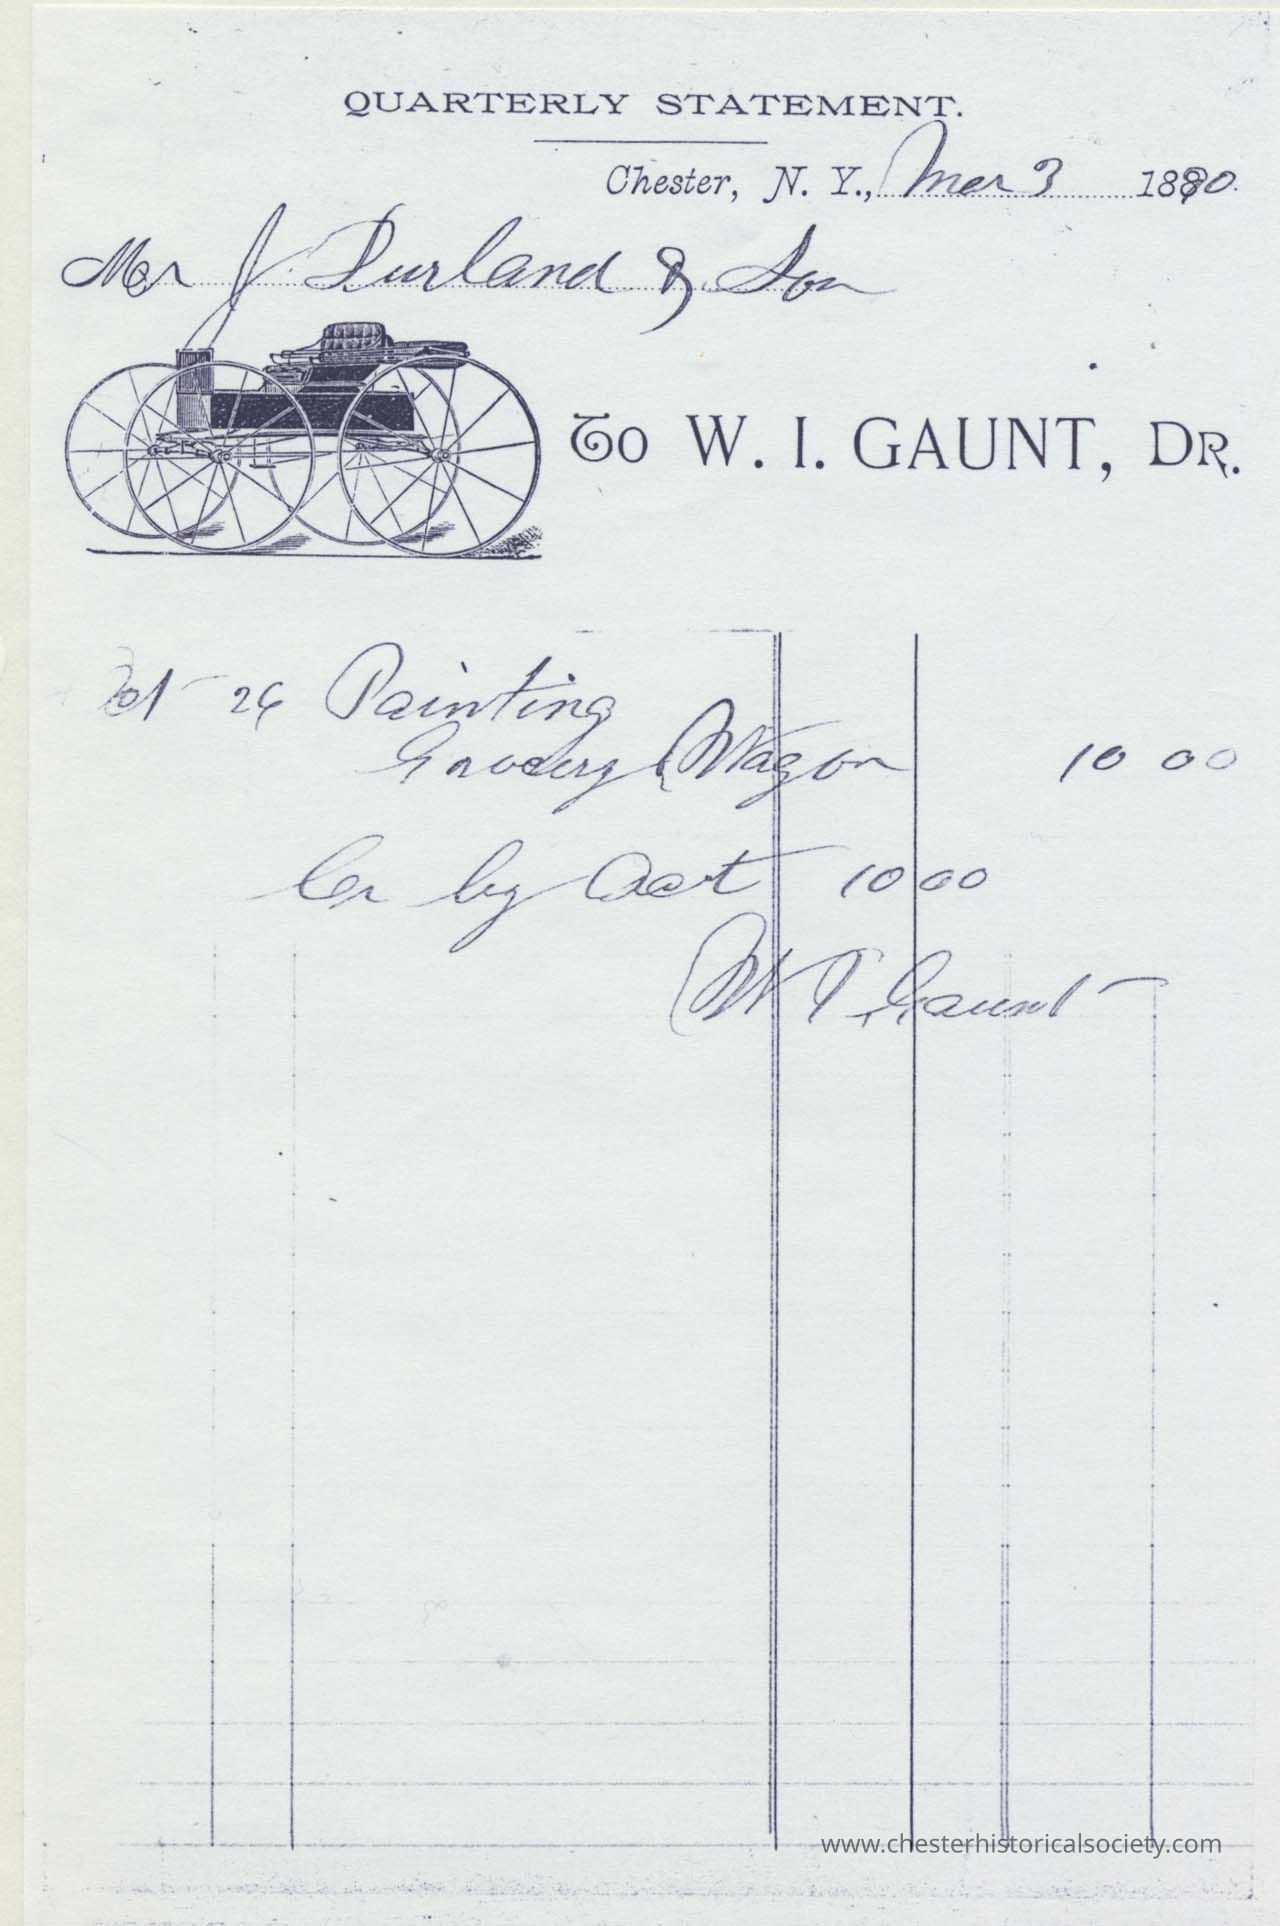 QUARTERLY STATEMENT.
Chester, N. Y., Mar 3 1890.
Mer J. Durland & Son
To W. I. GAUNT, DR.
26 Painting
Grocery Wagon 10 00
Cr by Acct 10 00
W I Gaunt
www.chesterhistoricalsociety.com